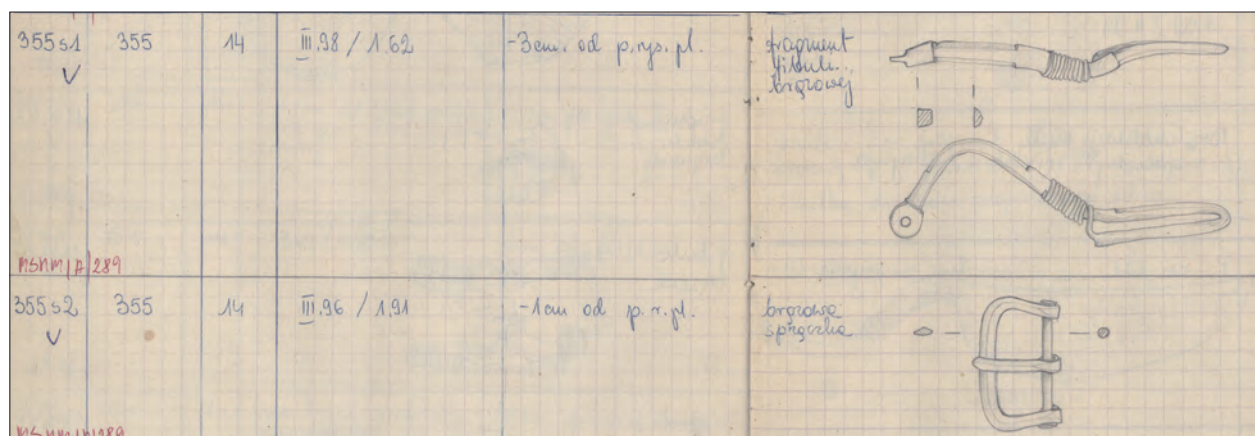 355 s1 355 14 III.98 / 1.62 -3cm. od p.rys.pl. fragment
fibuli..
brązowej
MSNM/A/289
355 s2 355 14 III.96 / 1.91 -1cm od p.r.pl. brązowa
sprzączka
MSNM/A/289